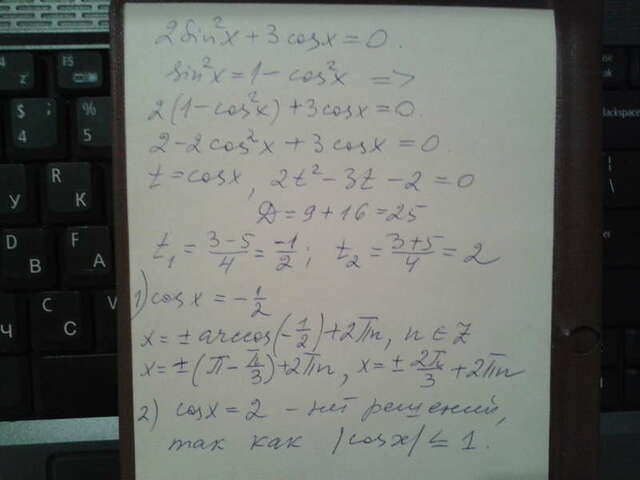 2sin²x + 3cosx = 0.
sin²x = 1 - cos²x =>
2(1 - cos²x) + 3cosx = 0.
2 - 2cos²x + 3cosx = 0.
t = cosx, 2t² - 3t - 2 = 0
D = 9 + 16 = 25
t₁ = (3-5)/4 = -1/2; t₂ = (3+5)/4 = 2
1) cosx = -1/2
x = ± arccos(-1/2) + 2πn, n ∈ Z
x = ±(π - π/3) + 2πn, x = ± 2π/3 + 2πn
2) cosx = 2 - нет решений,
так как |cosx| ≤ 1.
F5
$ ;
4
%
5
R
К
У
D
В
F
А
Ч
С